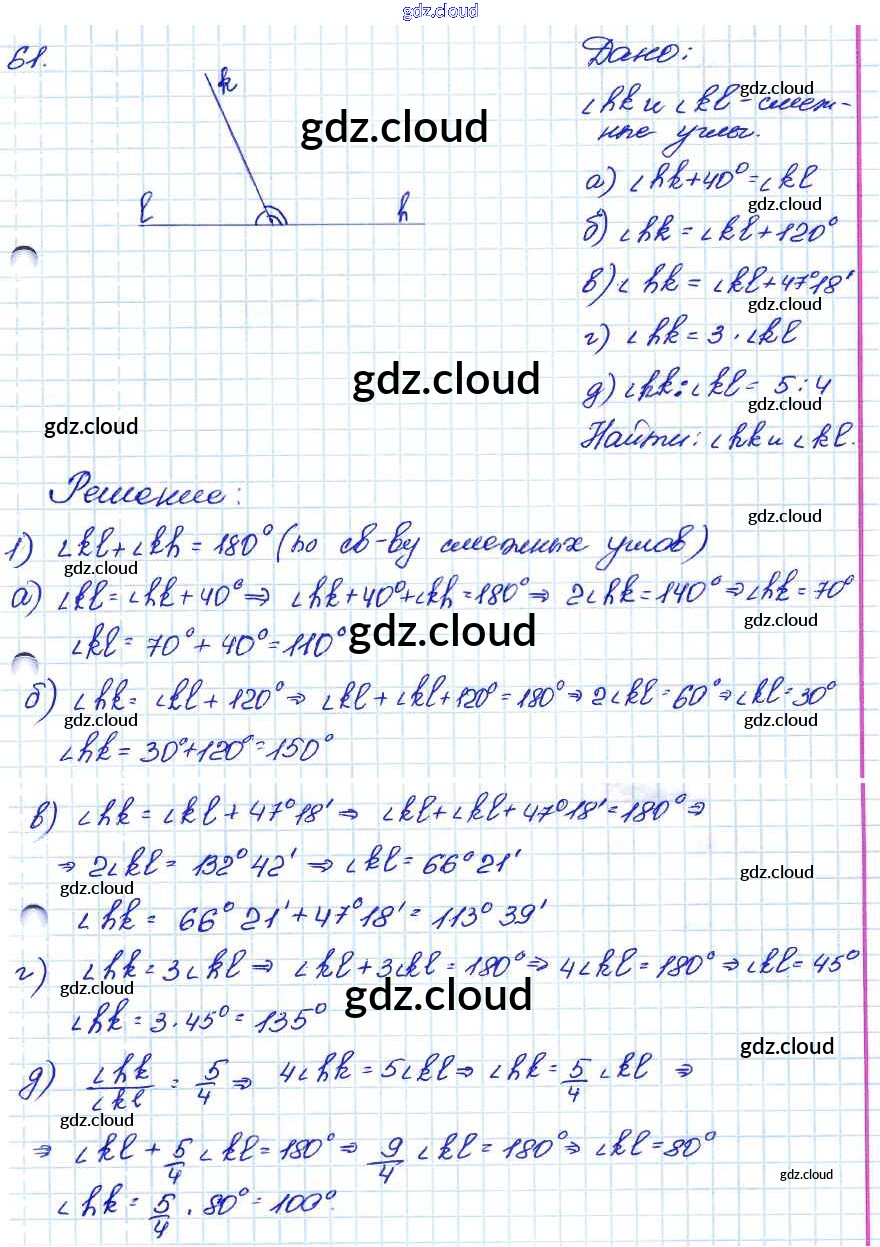 gdz.cloud
61.
k
l
h
gdz.cloud
Дано:
∠hk и ∠kl - смеж-
gdz.cloud
ные углы.
а) ∠hk+40°=∠kl
gdz.cloud
б) ∠hk = ∠kl+120°
gdz.cloud
в) ∠hk = ∠kl+47°18'
gdz.cloud
г) ∠hk = 3·∠kl
gdz.cloud
gdz.cloud
д) ∠hk:∠kl = 5:4
gdz.cloud
gdz.cloud
Найти: ∠hk и ∠kl.
Решение:
gdz.cloud
1) ∠kl+∠kh = 180° (по св-ву смежных углов)
gdz.cloud
а) ∠kl=∠hk+40° ⇒ ∠hk+40°+∠kh=180° ⇒ 2∠hk=140° ⇒ ∠hk=70°
gdz.cloud
∠kl = 70°+40°=110°
gdz.cloud
б) ∠hk = ∠kl+120° ⇒ ∠kl+∠kl+120°=180° ⇒ 2∠kl=60° ⇒ ∠kl=30°
gdz.cloud
gdz.cloud
∠hk = 30°+120°=150°
в) ∠hk = ∠kl+47°18' ⇒ ∠kl+∠kl+47°18'=180° ⇒
⇒ 2∠kl = 132°42' ⇒ ∠kl = 66°21'
gdz.cloud
gdz.cloud
∠hk = 66°21'+47°18'=113°39'
г) ∠hk=3∠kl ⇒ ∠kl+3∠kl=180° ⇒ 4∠kl=180° ⇒ ∠kl=45°
gdz.cloud
gdz.cloud
∠hk = 3·45°=135°
gdz.cloud
д) ∠hk/∠kl = 5/4 ⇒ 4∠hk = 5∠kl ⇒ ∠hk = 5/4 ∠kl ⇒
gdz.cloud
⇒ ∠kl + 5/4 ∠kl = 180° ⇒ 9/4 ∠kl = 180° ⇒ ∠kl=80°
gdz.cloud
∠hk = 5/4 · 80° = 100°.